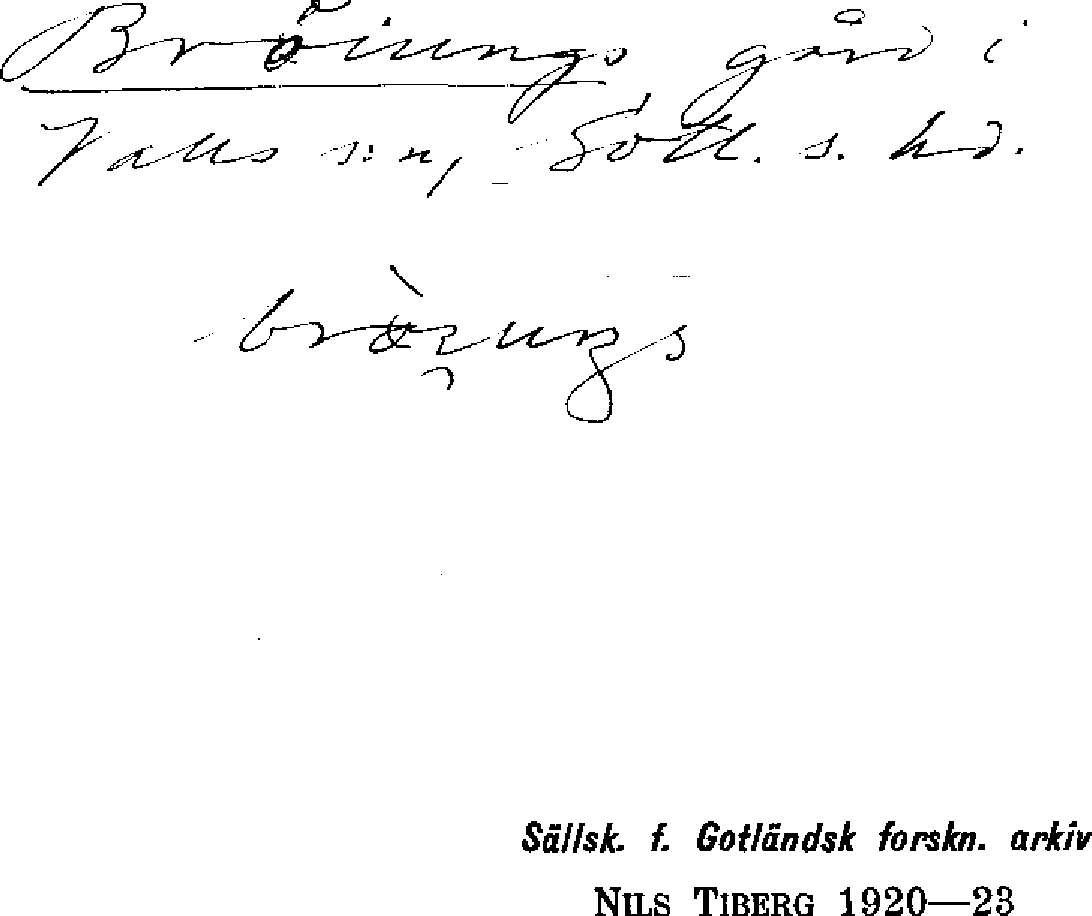 Bröiungs gård i
Valls s:n, Gotl. s. hd.
Sällsk. f. Gotländsk forskn. arkiv
NILS TIBERG 1920—23